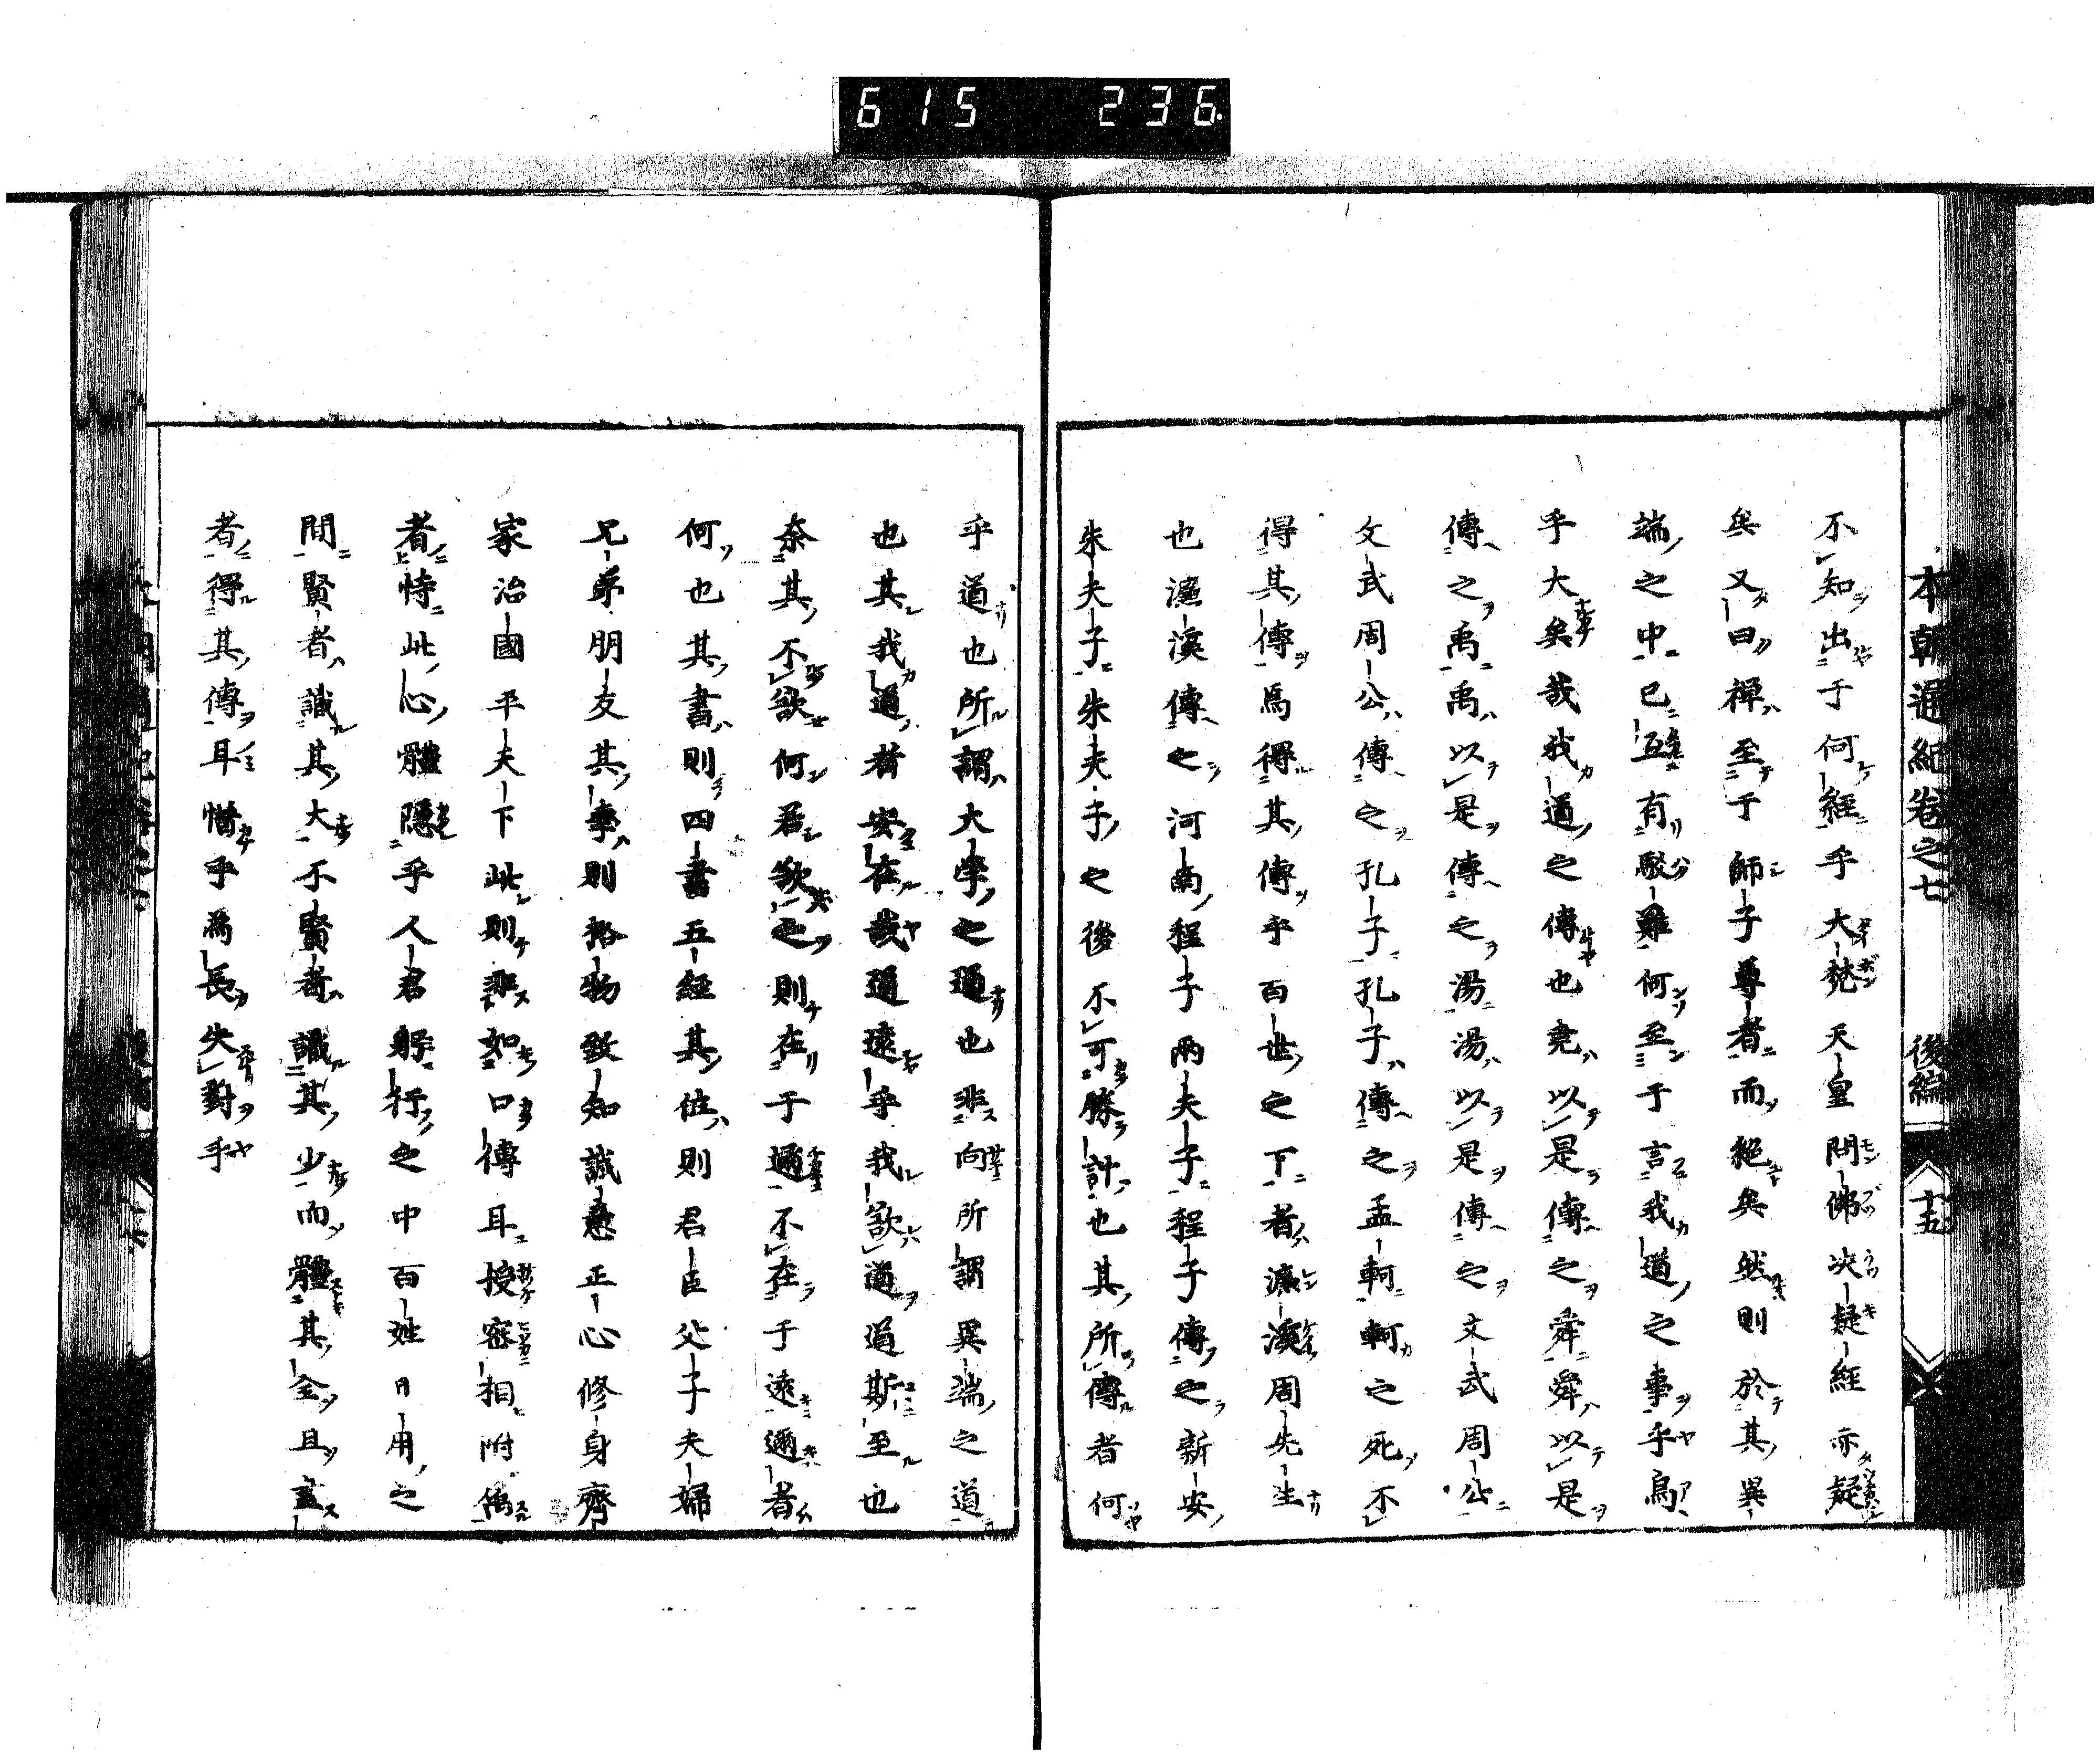 615 236
本朝通紀卷之七 後編 十五
不知出于何經乎大梵天皇問佛決疑經亦疑
矣又曰禪至于師子尊者而絕矣然則於其異
端之中已互有駁難何至于言我道之事乎烏
乎大矣哉我道之傳也堯以是傳之舜舜以是
傳之禹禹以是傳之湯湯以是傳之文武周公
文武周公傳之孔子孔子傳之孟軻軻之死不
得其傳焉得其傳乎百世之下者濂溪周先生
也濂溪傳之河南程子兩夫子程子傳之新安
朱夫子朱夫子之後不可勝計也其所傳者何
乎道也所謂大學之道也非向所謂異端之道
也其我道者安在哉道遠乎我欲道道斯至也
奈其不欲何君欲之則在于邇不在于遠邇者
何也其書則四書五經其位則君臣父子夫婦
兄弟朋友其事則格物致知誠意正心修身齊
家治國平天下此則非如口傳耳授密相附
者恃此心體隱乎人君躬行之中百姓日用之
間賢者識其大不賢者識其少而體其全且
者得其傳耳惜乎為長失對乎